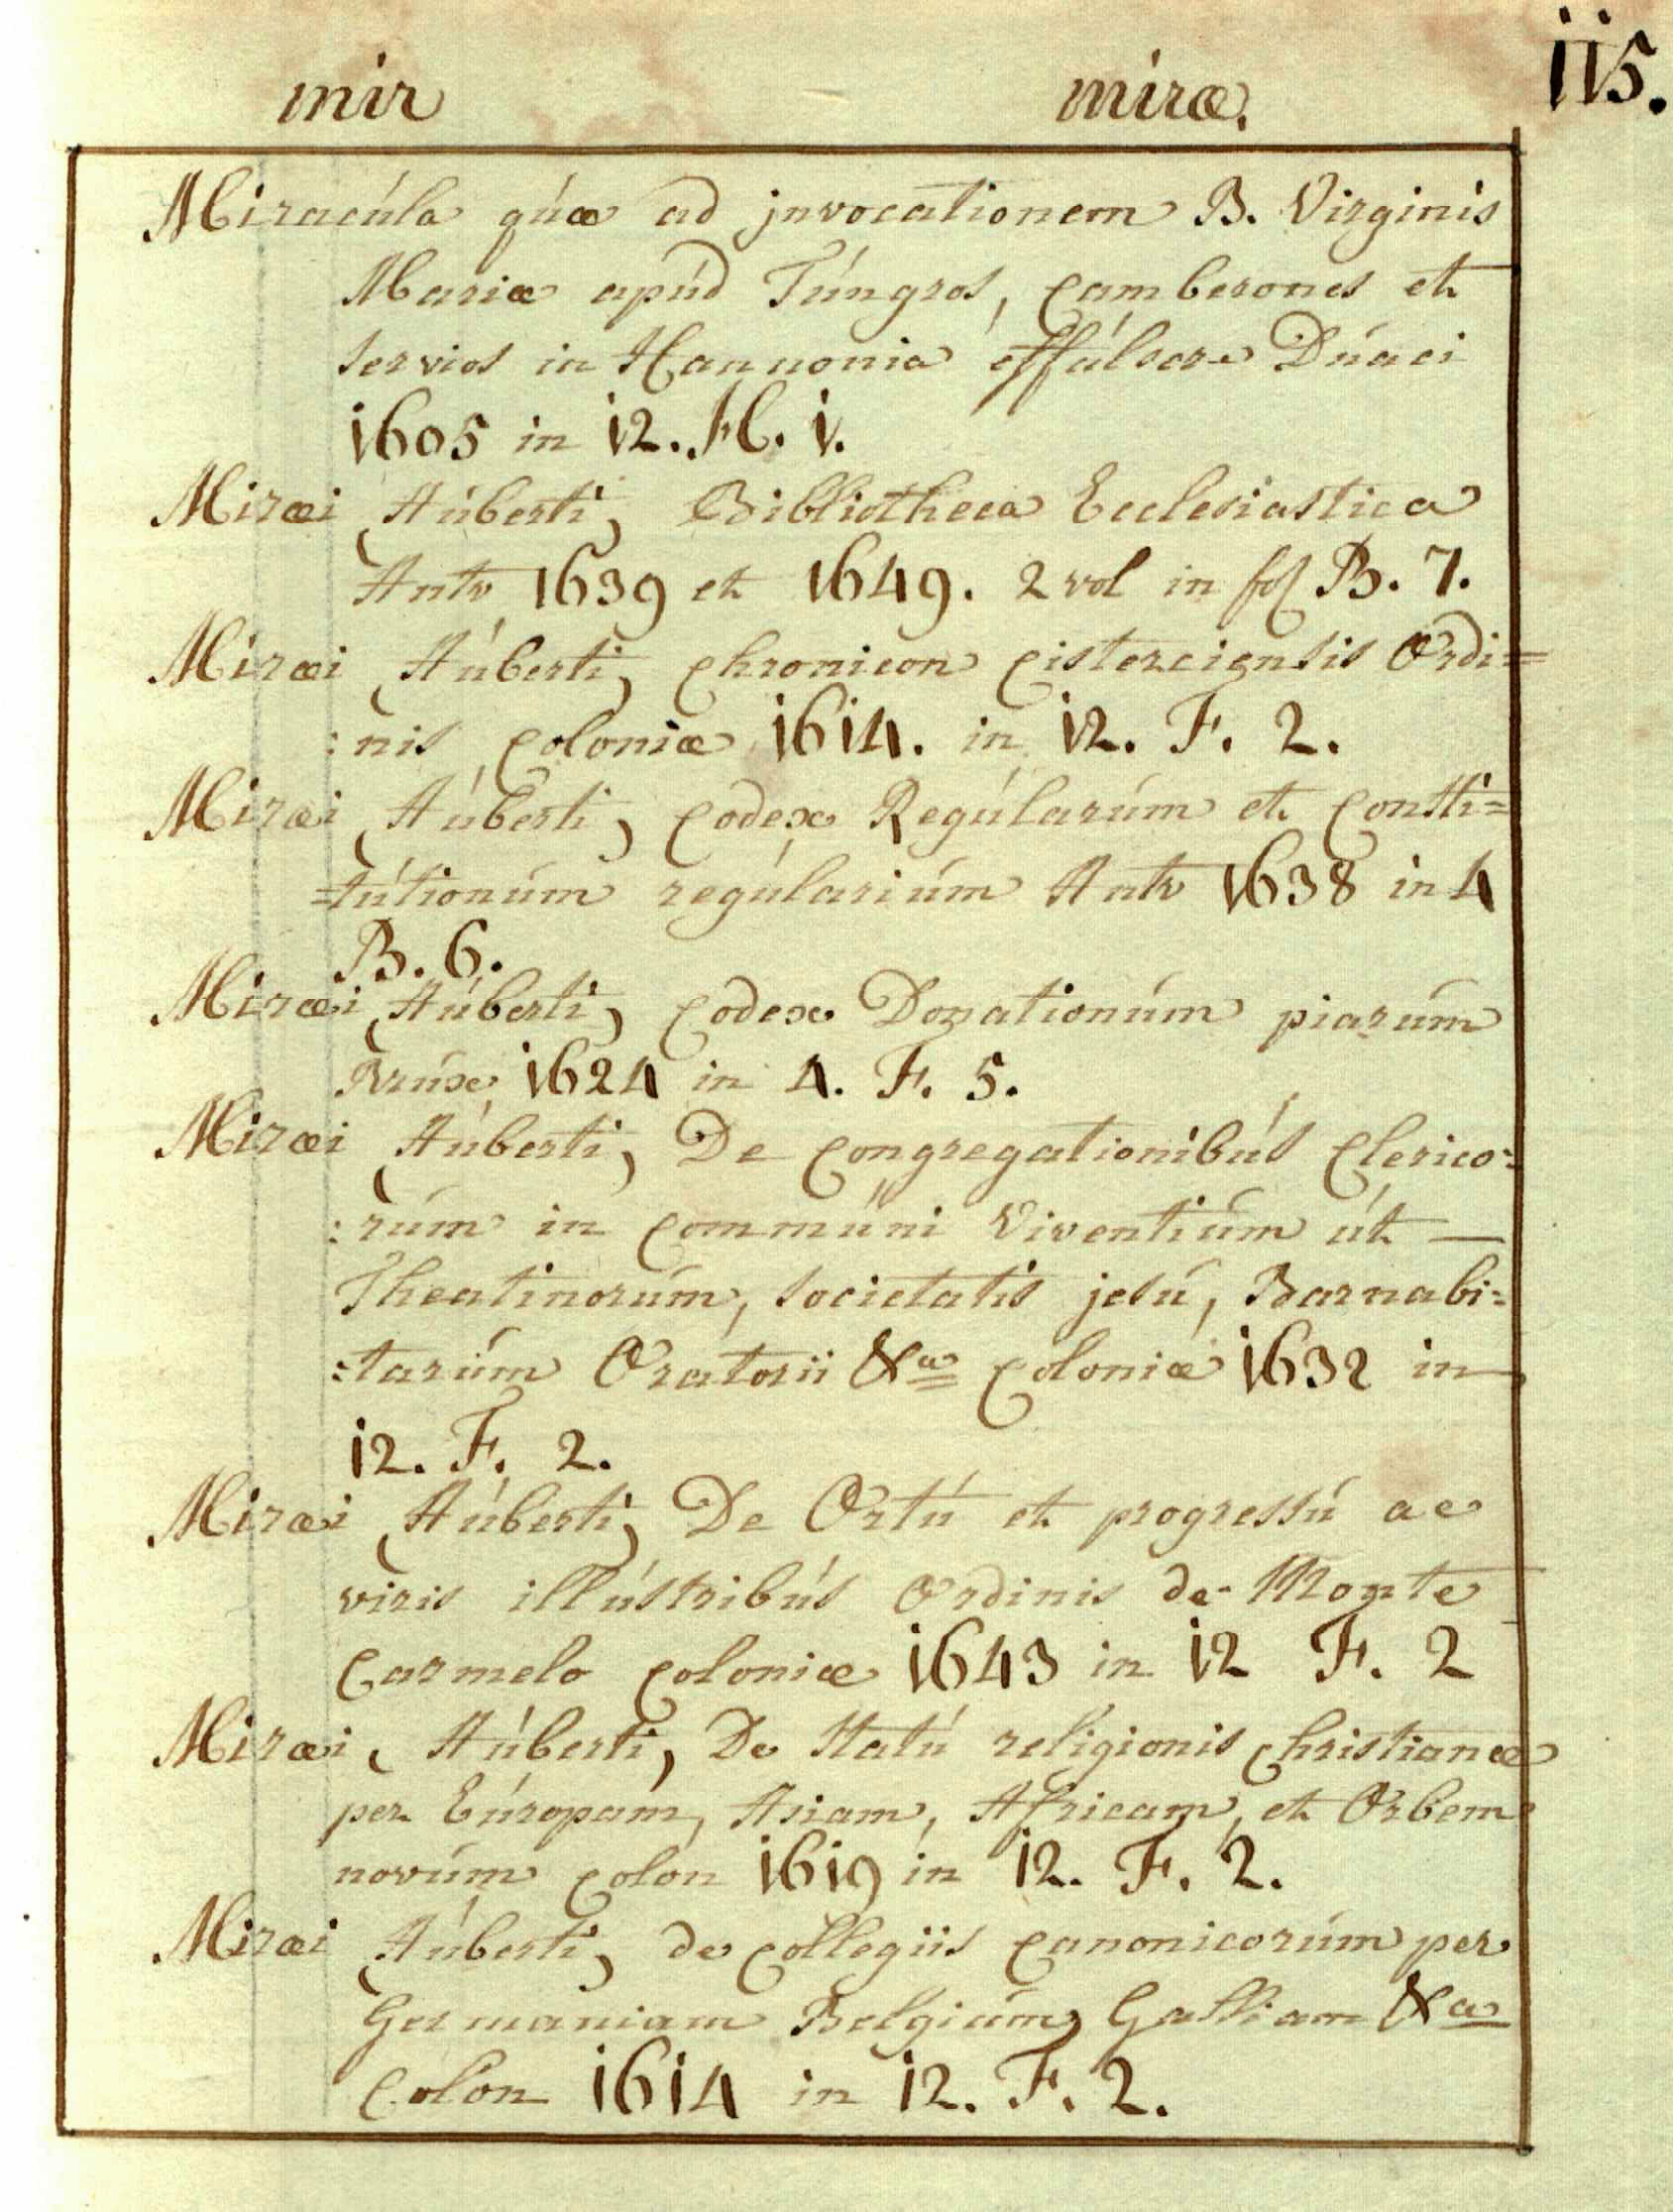 mir miræ. 115.
Miracúla qúæ ad jnvocationem B. Virginis
Mariæ apúd Túngros, Camberones et
Servios in Hannonia effúlsere Dúaci
1605 in 12. H. 1.
Miræi (Aúberti) Bibliotheca Ecclesiastica
Antv 1639 et 1649. 2 vol in fol B. 7.
Miræi (Aúberti) Chronicon Cisterciensis Ordi=
:nis Coloniæ 1614. in 12. F. 2.
Miræi (Aúberti) Codex Regúlarúm et Consti=
=tútionúm regúlariúm Antv 1638 in 4
B. 6.
Miræi (Aúberti) Codex Donationúm piarúm
Brúx 1624 in 4. F. 5.
Miræi (Aúberti) De Congregationibús Clerico=
:rúm in Commúni Viventiúm út —
Theatinorúm, Societatis jesú, Barnabi=
:tarúm Oratorii &a Coloniæ 1632 in
12. F. 2.
Miræi (Aúberti) De Ortú et progressú ac
viris illústribús Ordinis de Monte
Carmelo Coloniæ 1643 in 12 F. 2
Miræi (Aúberti) De Statú religionis Christianæ
per Eúropam, Asiam, Africam, et Orbem
novúm Colon 1619 in 12. F. 2.
Miræi (Aúberti) de Collegiis Canonicorúm per
Germaniam Belgiúm, Galliam &a
Colon 1614 in 12. F. 2.